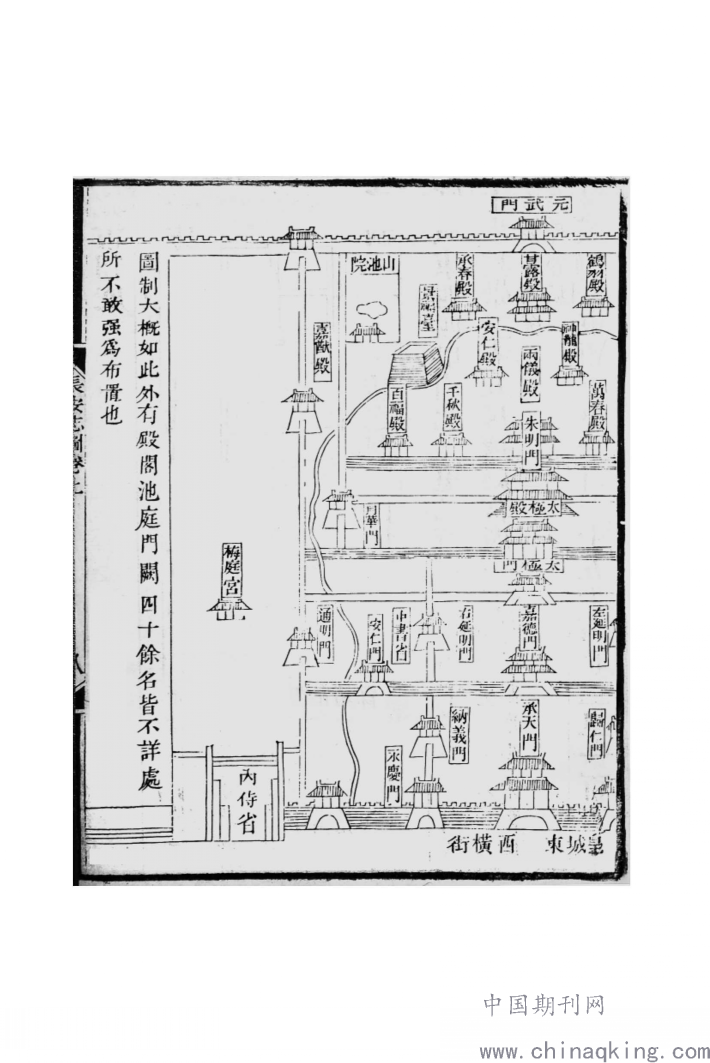 元武門
鶴羽殿
甘露殿
承春殿
山池院
神龍殿
兩儀殿
安仁殿
嘉猷殿
萬春殿
朱明門
千秋殿
百福殿
太極殿
月華門
太極門
左延明門
嘉德門
右延明門
中書省
安仁門
通明門
歸仁門
承天門
納義門
永慶門
皇城東 西橫街
梅庭宮
內侍省
圖制大概如此外有殿閣池庭門闕四十餘名皆不詳處
所不敢强爲布置也
長安志圖卷上
中国期刊网
www.chinaqking.com